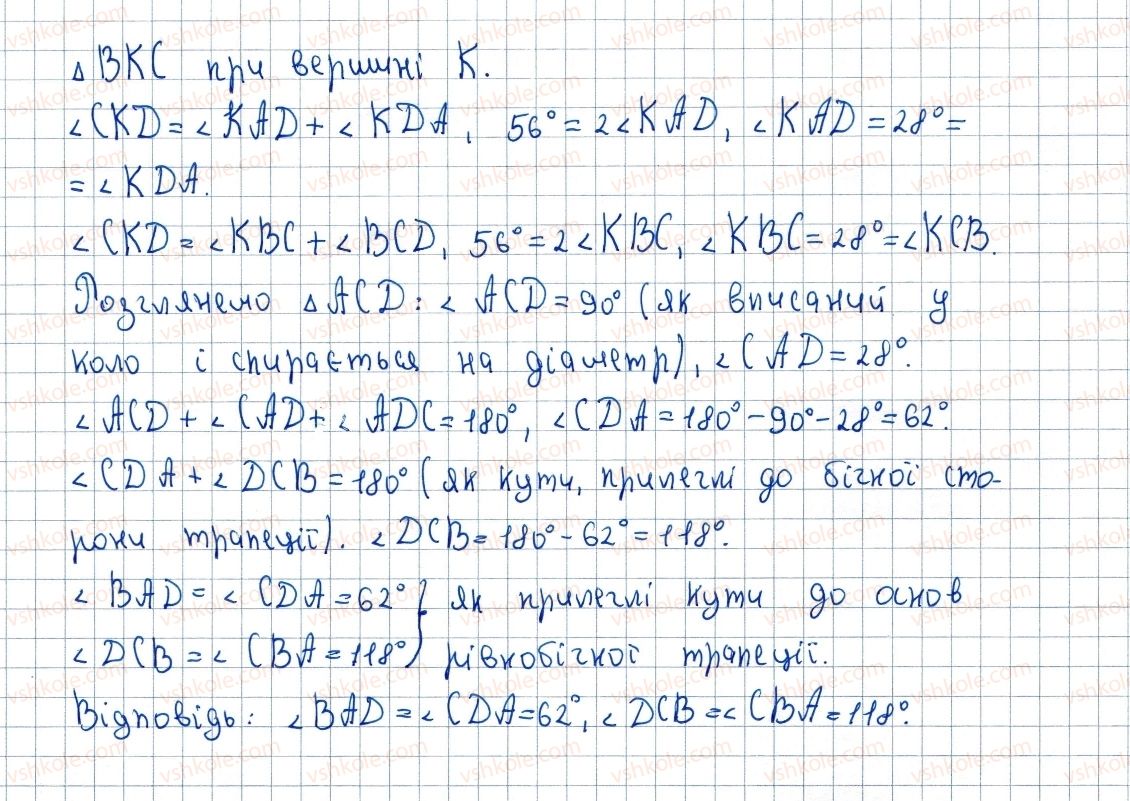 △ BKC при вершині K.
∠CKD = ∠KAD + ∠KDA, 56° = 2∠KAD, ∠KAD = 28° =
= ∠KDA.
∠CKD = ∠KBC + ∠BCD, 56° = 2∠KBC, ∠KBC = 28° = ∠KCB.
Розглянемо △ACD: ∠ACD = 90° (як вписаний у
коло і спирається на діаметр), ∠CAD = 28°.
∠ACD + ∠CAD + ∠ADC = 180°, ∠CDA = 180° - 90° - 28° = 62°.
∠CDA + ∠DCB = 180° (як кути, прилеглі до бічної сто-
рони трапеції). ∠DCB = 180° - 62° = 118°.
∠BAD = ∠CDA = 62° } як прилеглі кути до основ
∠DCB = ∠CBA = 118° } рівнобічної трапеції.
Відповідь: ∠BAD = ∠CDA = 62°, ∠DCB = ∠CBA = 118°.
vshkole.com